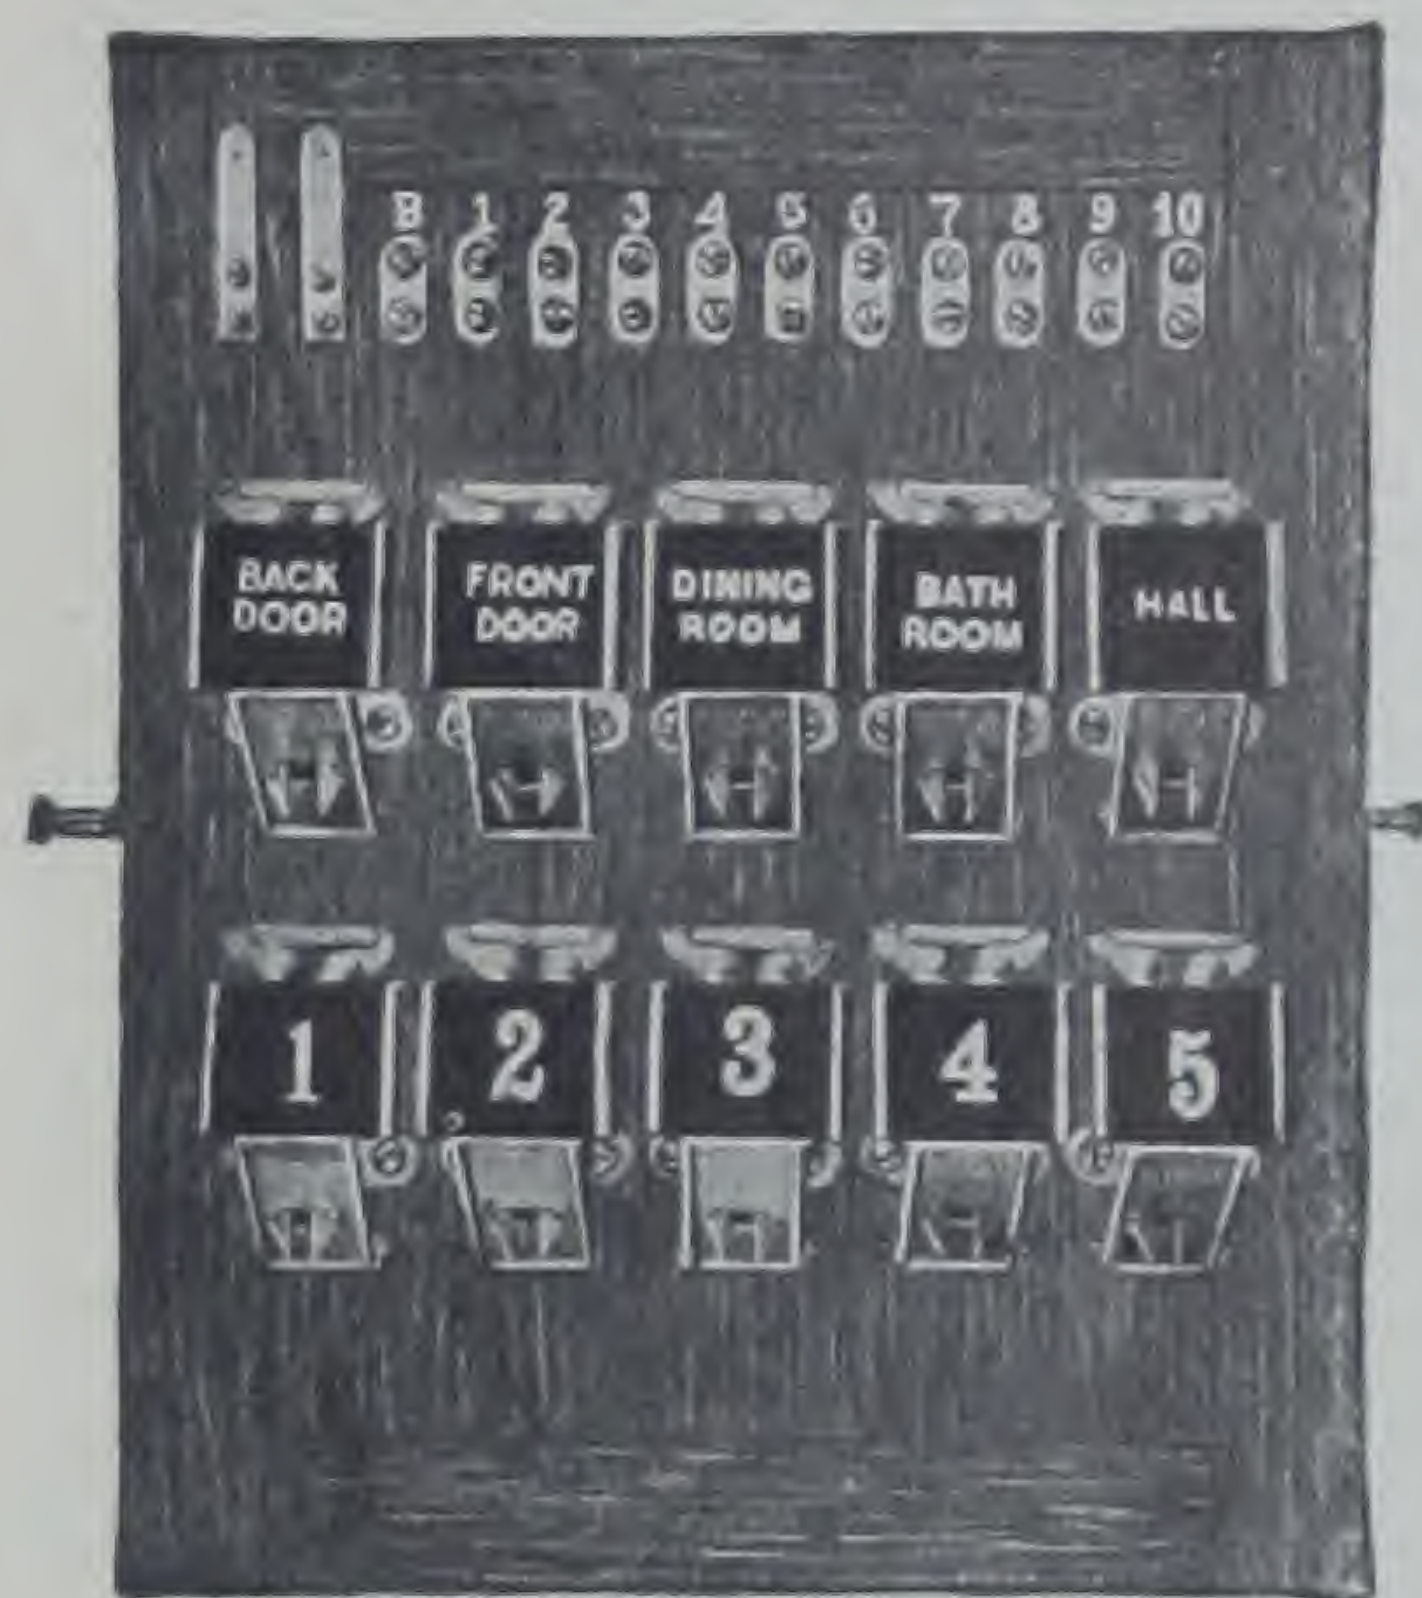 B 1 2 3 4 5 6 7 8 9 10
BACK
DOOR
FRONT
DOOR
DINING
ROOM
BATH
ROOM
HALL
1 2 3 4 5